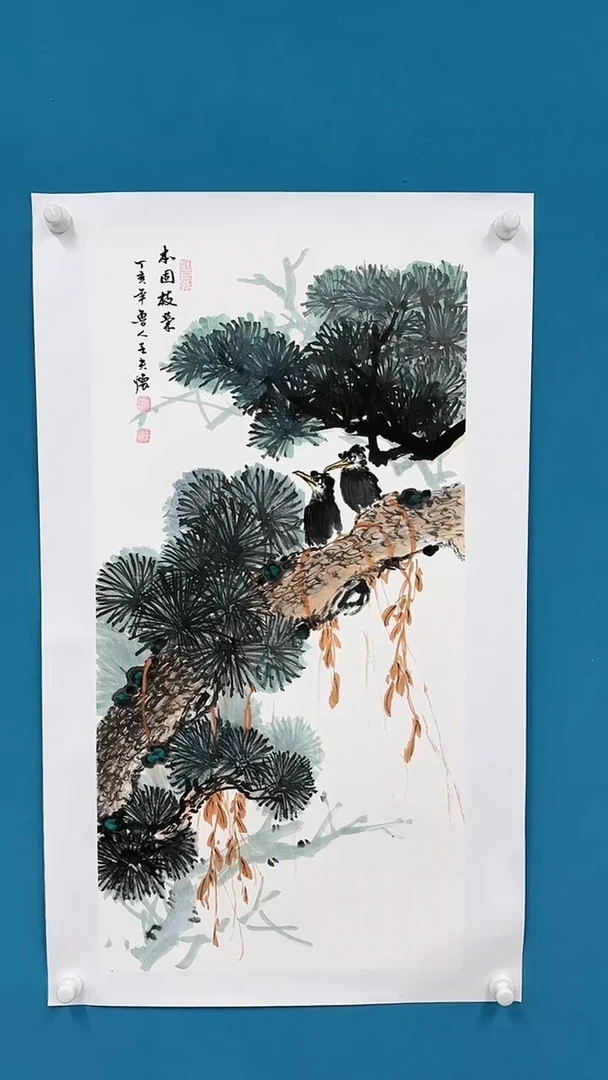 本固枝荣
丁亥年鲁人王